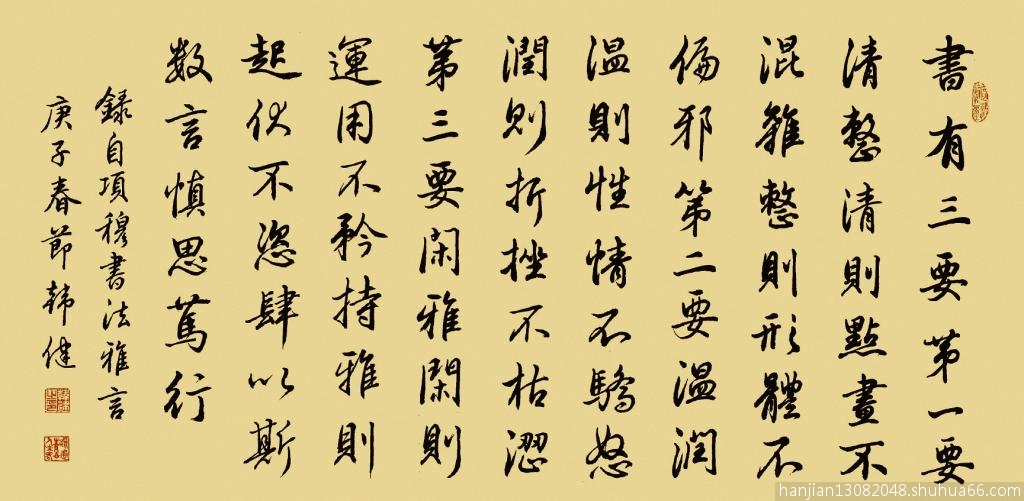 書有三要第一要
清整清則點畫不
混雜整則形體不
偏邪第二要溫潤
溫則性情不驕怒
潤則折挫不枯澀
第三要閑雅閑則
運用不矜持雅則
起伏不恣肆以斯
数言慎思篤行
錄自項穆書法雅言
庚子春節韩健
hanjian13082048.shuhua66.com